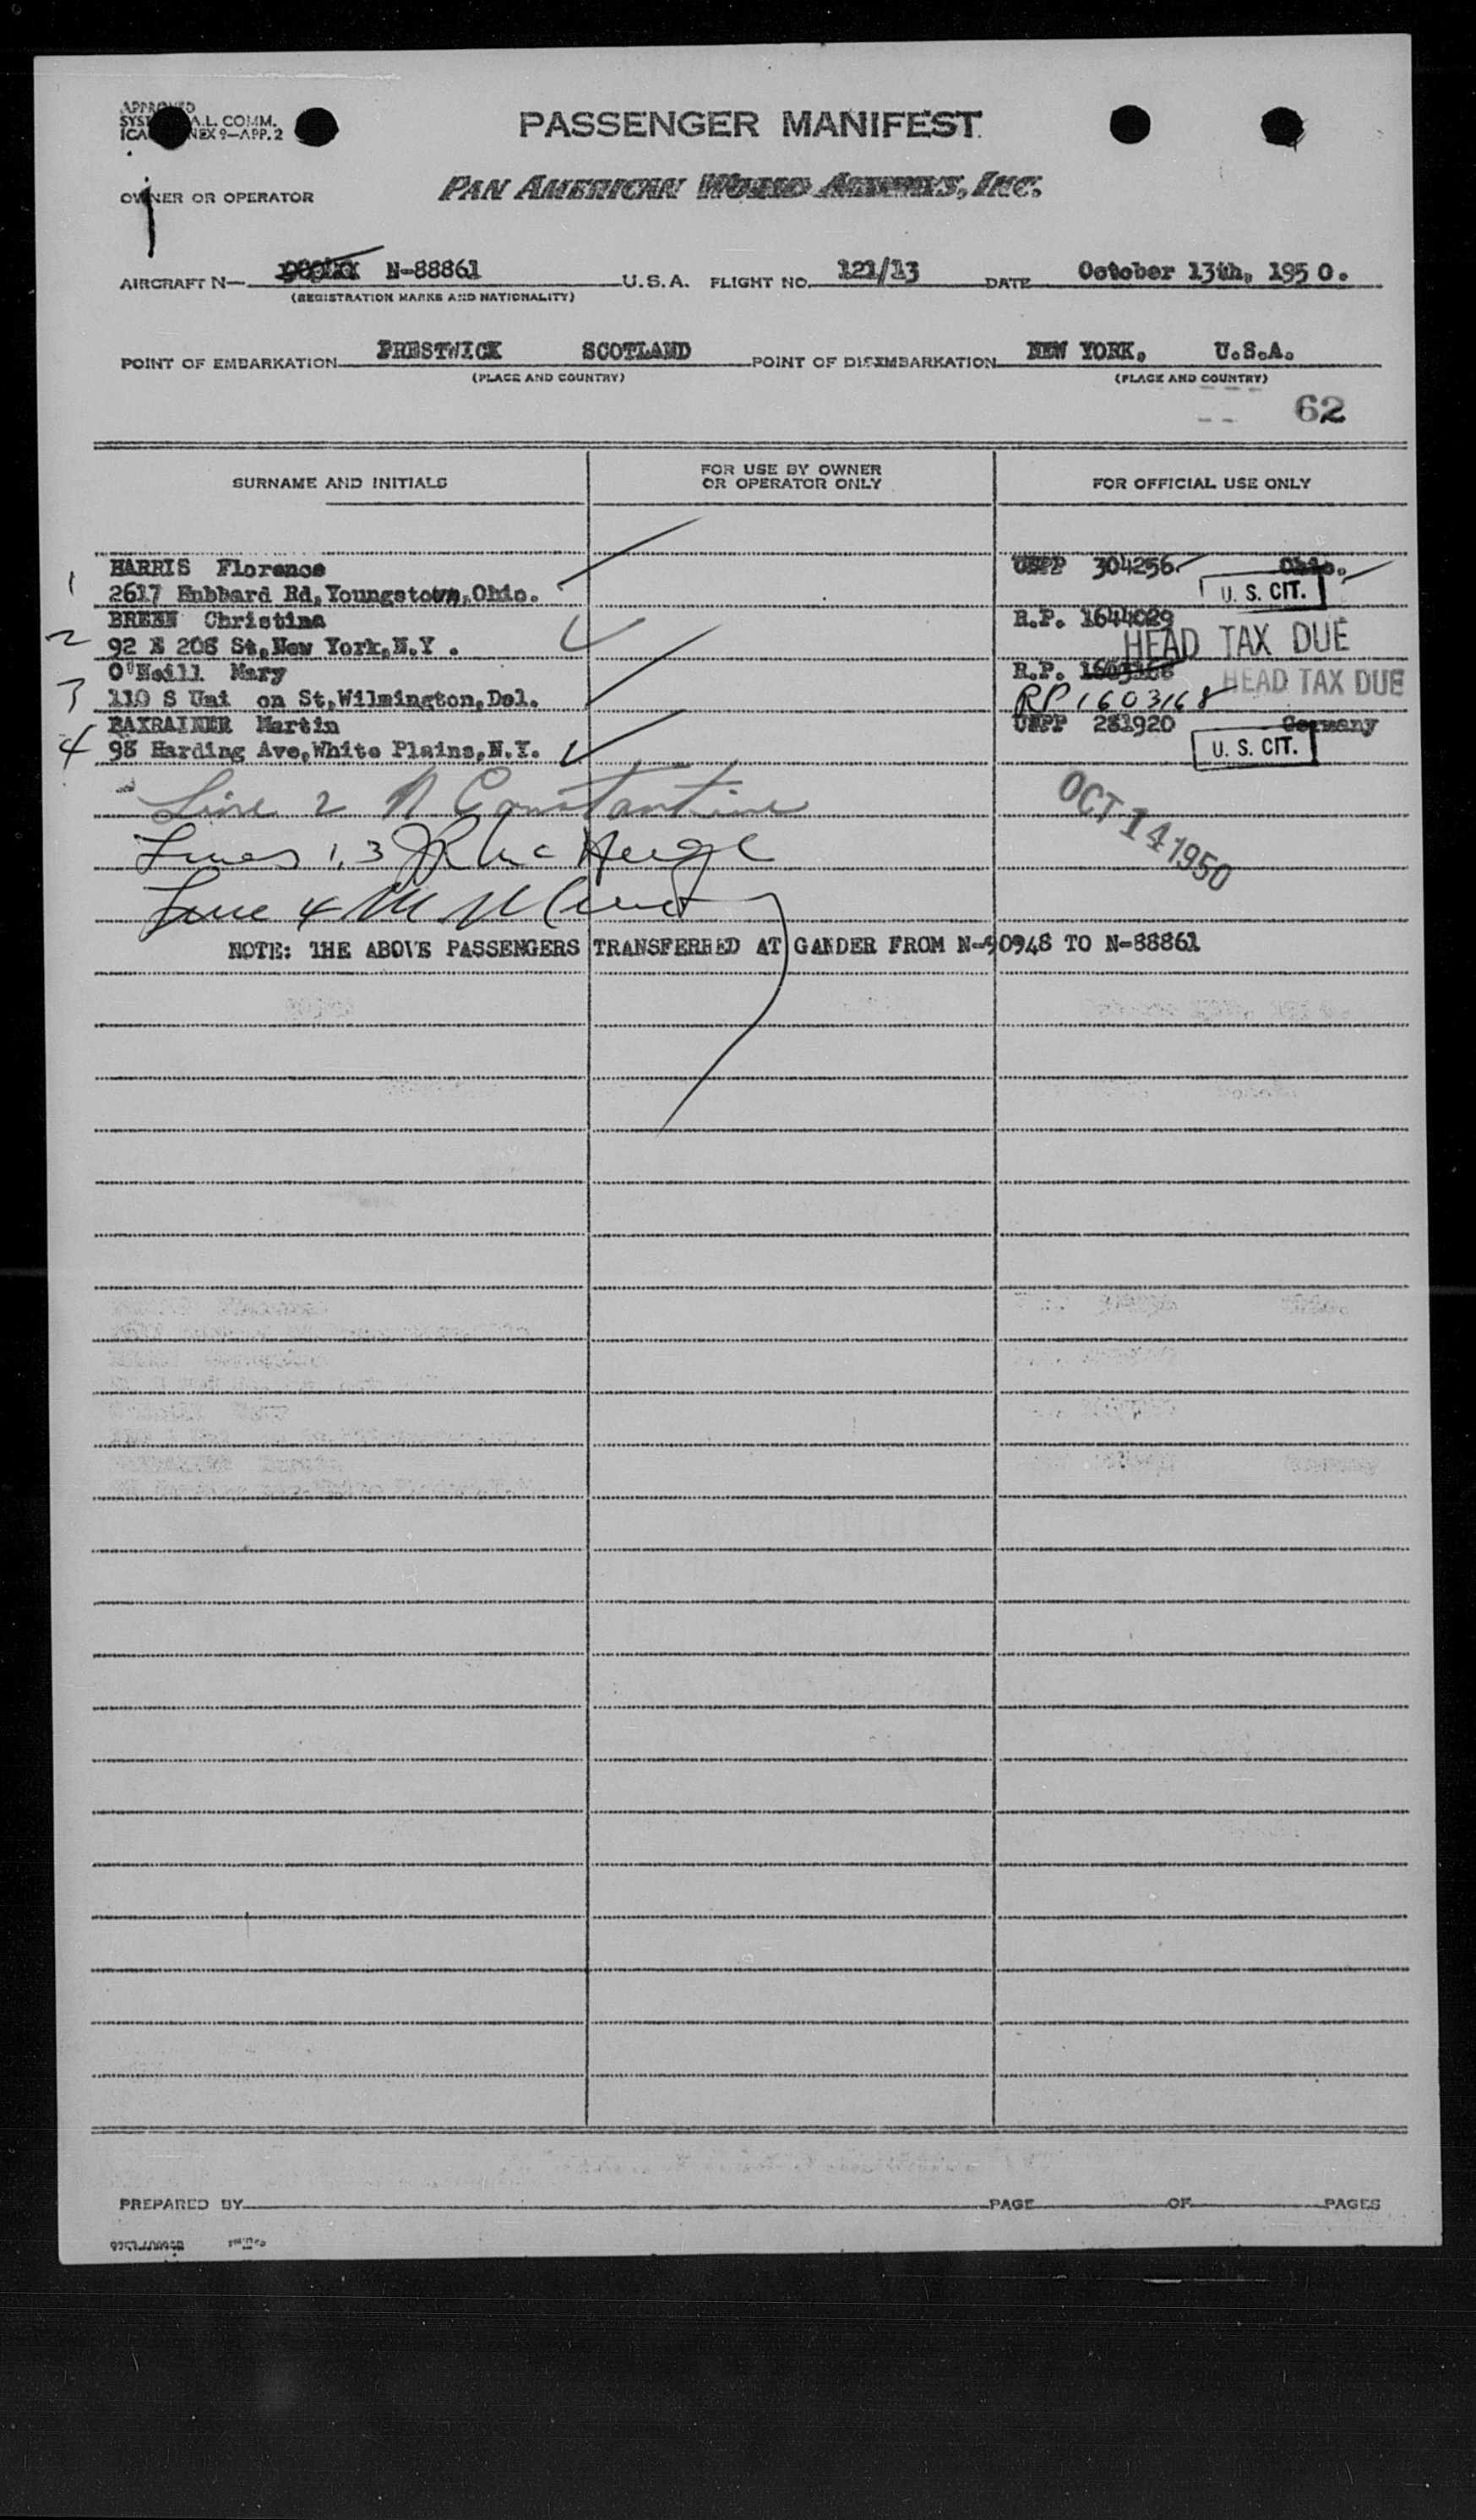 APPROVED
SYST A.L. COMM.
ICA NEX 9—APP. 2
PASSENGER MANIFEST
OWNER OR OPERATOR PAN AMERICAN WORLD AIRWAYS, INC.
AIRCRAFT N— N-88861 U.S.A. FLIGHT NO. 121/13 DATE October 13th, 1950.
(REGISTRATION MARKS AND NATIONALITY)
POINT OF EMBARKATION PRESTWICK SCOTLAND POINT OF DISEMBARKATION NEW YORK, U.S.A.
(PLACE AND COUNTRY) (PLACE AND COUNTRY)
62
SURNAME AND INITIALS FOR USE BY OWNER OR OPERATOR ONLY FOR OFFICIAL USE ONLY
1 HARRIS Florence USPP 304256 Ohio.
2617 Hubbard Rd, Youngstown, Ohio. U. S. CIT.
2 BREEN Christina R.P. 1644029
92 E 208 St, New York, N.Y. HEAD TAX DUE
3 O'Neill Mary R.P. 1603168 HEAD TAX DUE
110 S Uni on St, Wilmington, Del. RP 1603168
4 BAXRAINER Martin USPP 281920 Germany
98 Harding Ave, White Plains, N.Y. U. S. CIT.
Line 2 N Constantine
OCT 14 1950
Lines 1, 3
Line 4
NOTE: THE ABOVE PASSENGERS TRANSFERRED AT GANDER FROM N-90948 TO N-88861
PREPARED BY PAGE OF PAGES